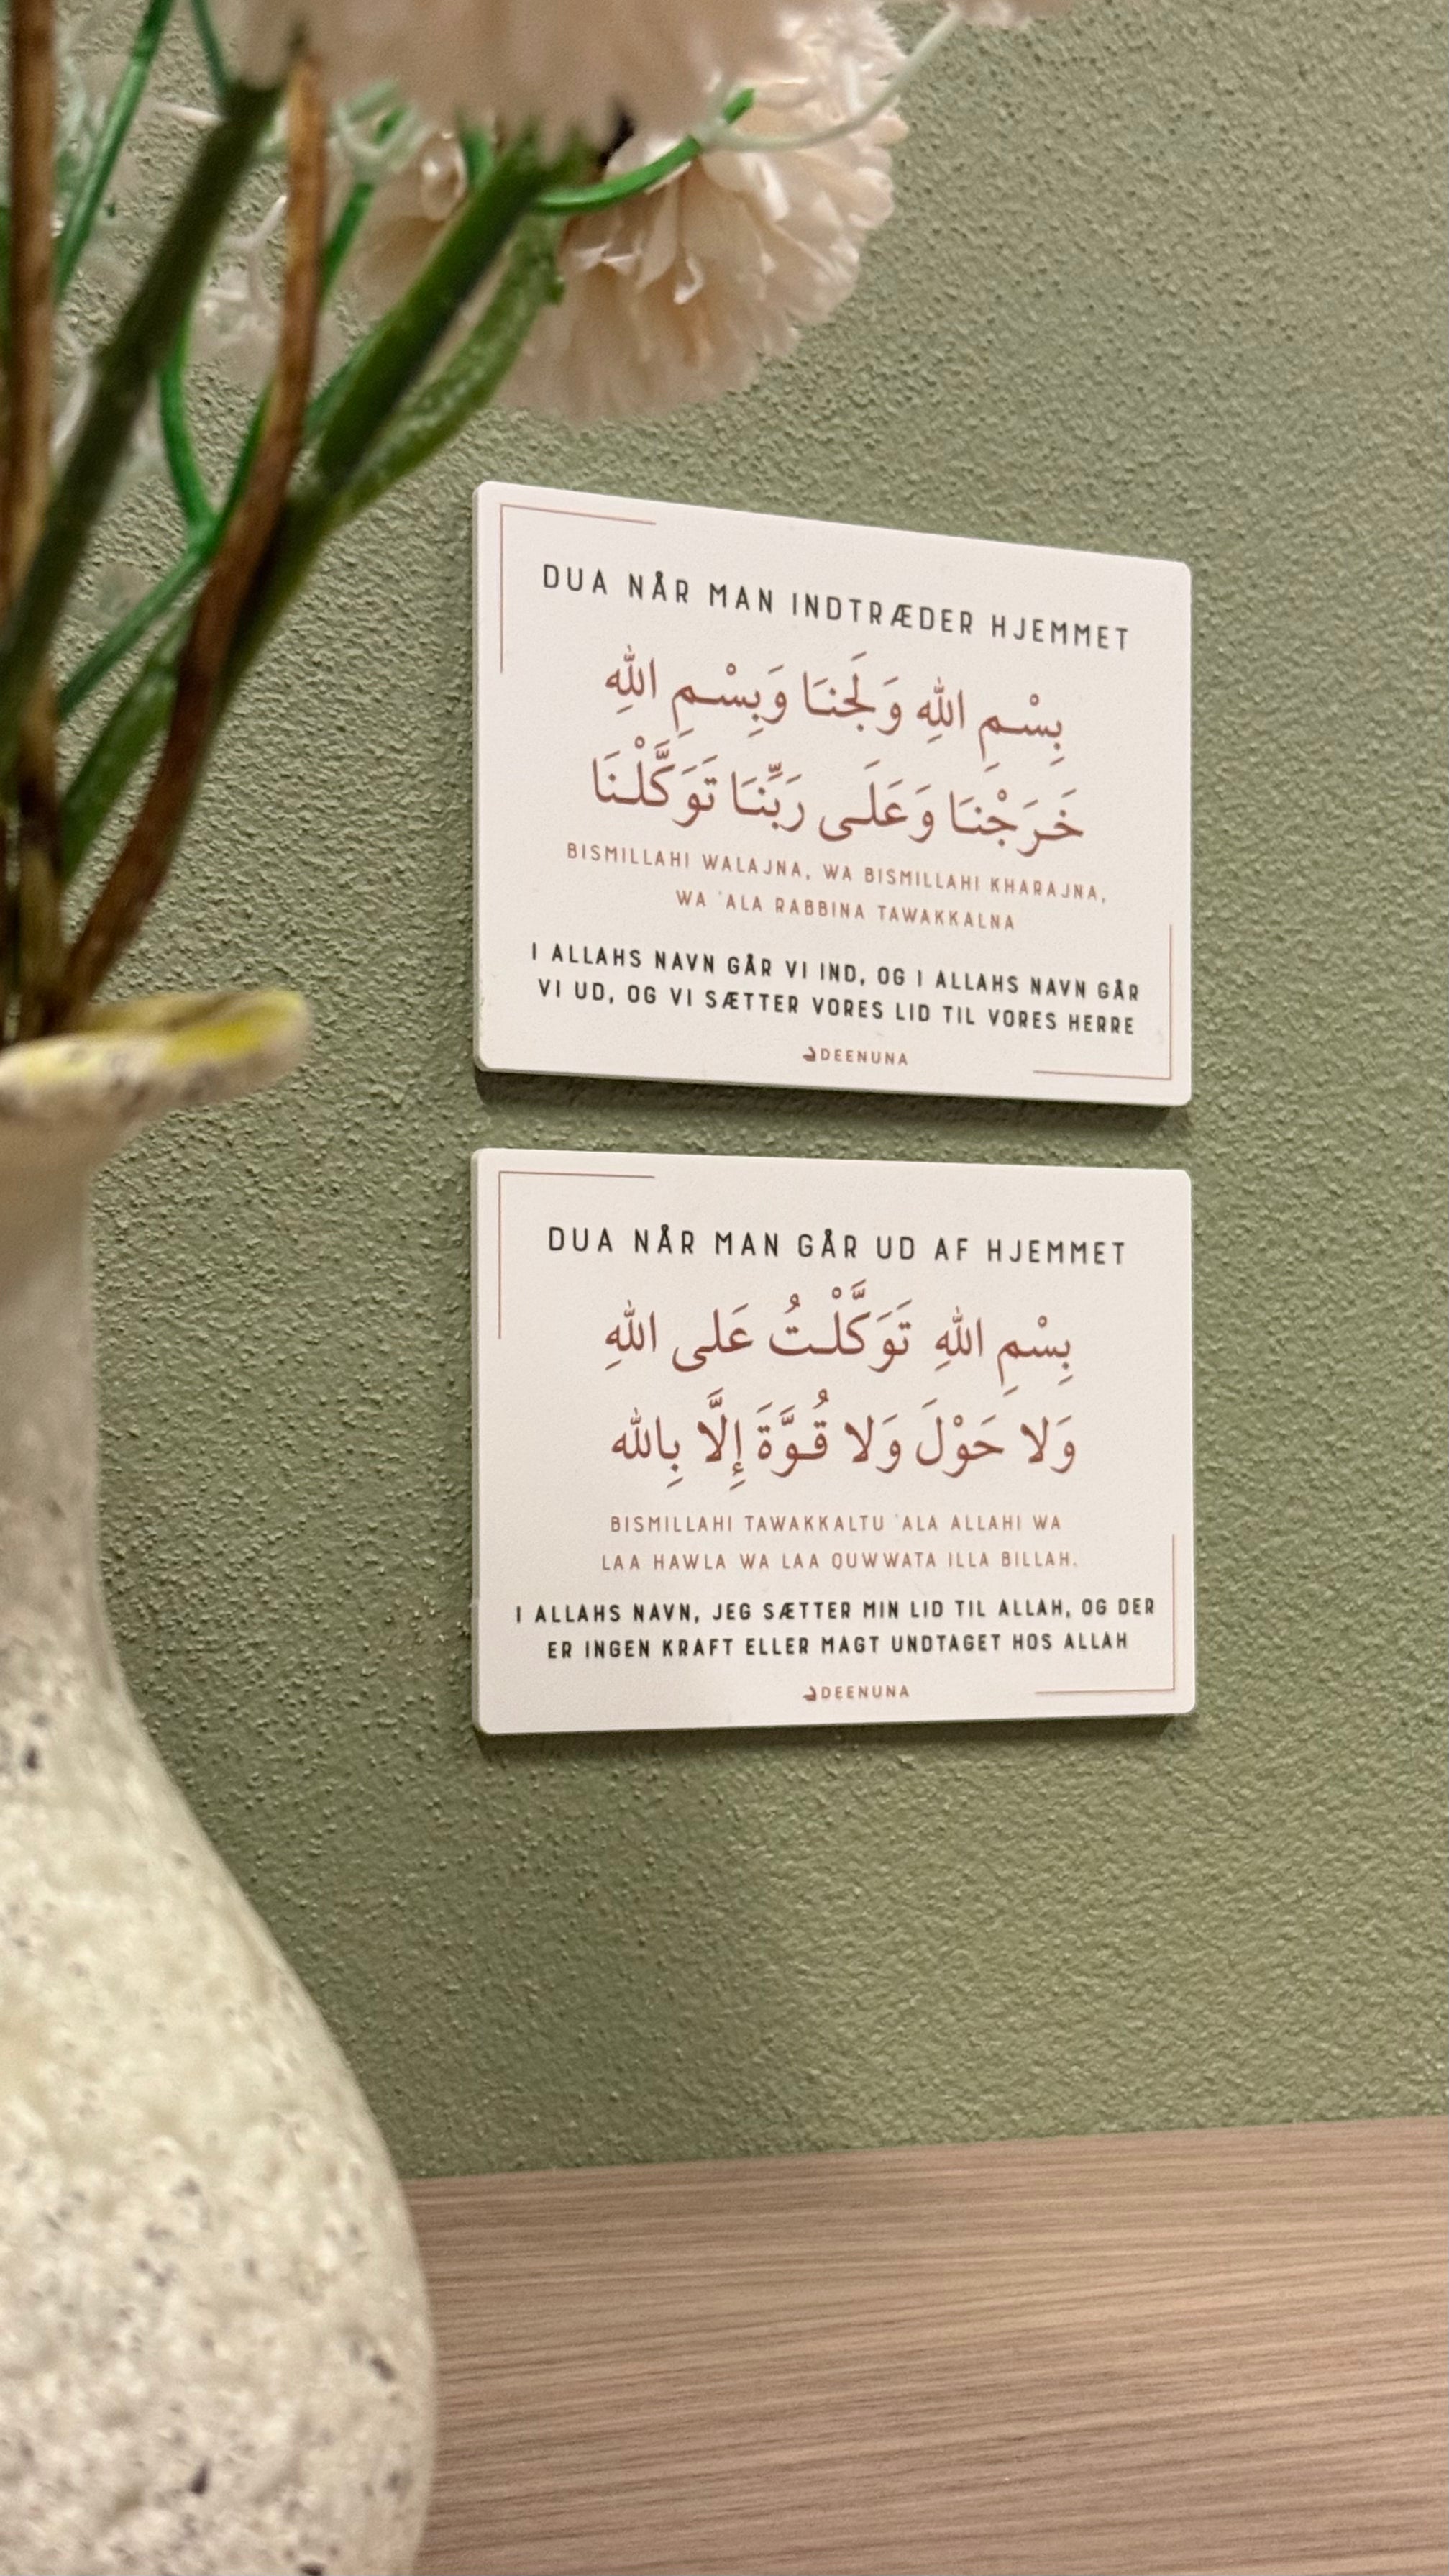 DUA NÅR MAN INDTRÆDER HJEMMET
بِسْمِ اللهِ وَلَجْنَا وَبِسْمِ اللهِ
خَرَجْنَا وَعَلَى رَبِّنَا تَوَكَّلْنَا
BISMILLAHI WALAJNA, WA BISMILLAHI KHARAJNA,
WA 'ALA RABBINA TAWAKKALNA
I ALLAHS NAVN GÅR VI IND, OG I ALLAHS NAVN GÅR
VI UD, OG VI SÆTTER VORES LID TIL VORES HERRE
DEENUNA
DUA NÅR MAN GÅR UD AF HJEMMET
بِسْمِ اللهِ تَوَكَّلْتُ عَلى اللهِ
وَلا حَوْلَ وَلا قُوَّةَ إِلَّا بِالله
BISMILLAHI TAWAKKALTU 'ALA ALLAHI WA
LAA HAWLA WA LAA QUWWATA ILLA BILLAH.
I ALLAHS NAVN, JEG SÆTTER MIN LID TIL ALLAH, OG DER
ER INGEN KRAFT ELLER MAGT UNDTAGET HOS ALLAH
DEENUNA